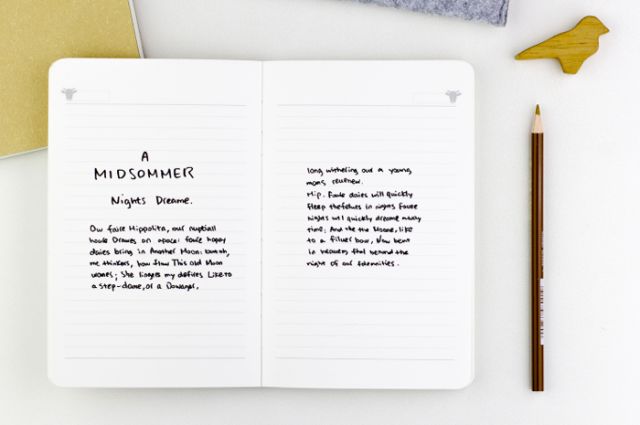 A
MIDSOMMER
Nights Dreame.
Ow faire Hippolita, our nuptiall
Drawes on apace: foure happy
daies bring in Another Moon: but oh,
me thinkes, how flow This old Moon
wanes; She lingers my defires Like to
a Step-dame, or a Dowager,
long withering out a young
mans
Hip. Foure daies will quickly
in nights Foure
nights wil quickly dreame away
time: And the the Moone, like
to a filuer bow, Now bent
in heauen, fhal the
night of our